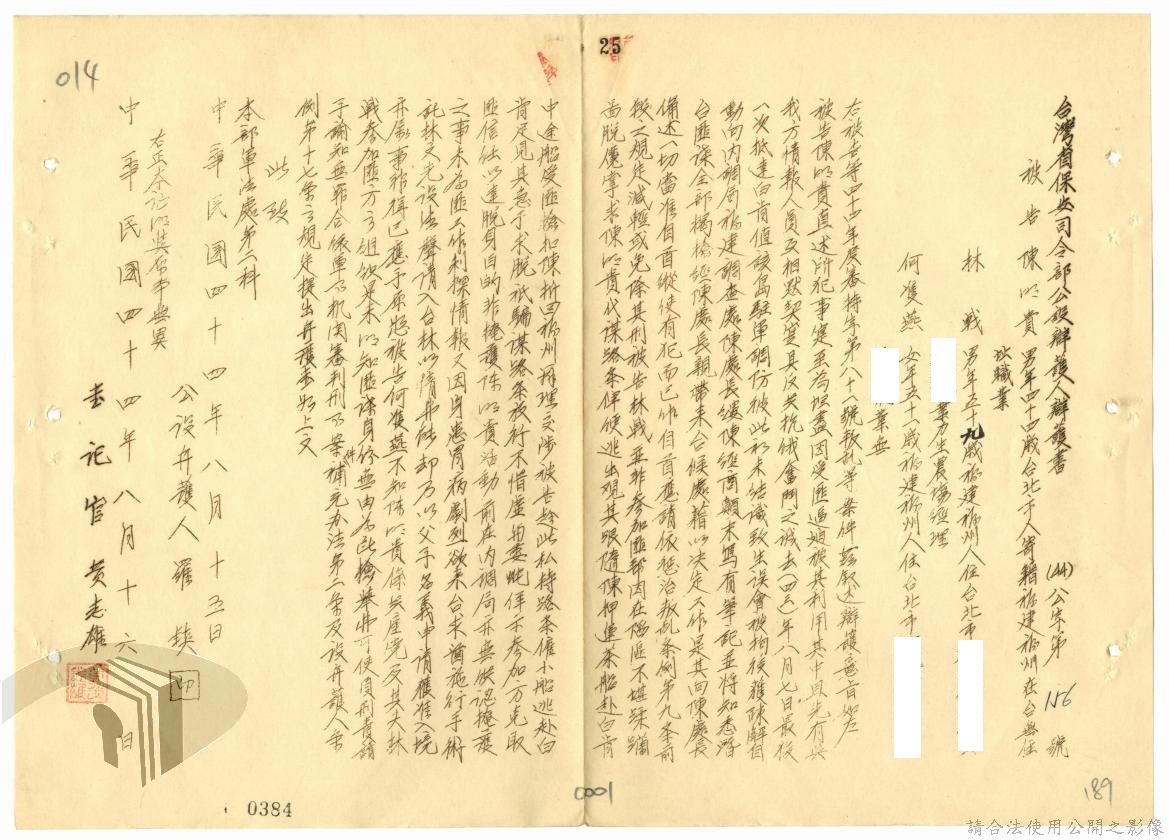 25
014
台灣省保安司令部公設辯護人辯護書
(44)公字第156號
被告陳明貴 男年四十四歲台北市人寄籍福建福州在台無住
址職業
林戰 男年五十九歲福建福州人住台北市
業力生農場經理
何隻燕 女年五十一歲福建福州人住台北市
業無
右被告等四十四年度審特字第八十一號叛亂等案件茲敘述辯護意旨如左
被告陳明貴直述所犯事實至為坦盡因受匪逼迫被其利用其中且先有與
我方情報人員互相默契實具反共抗俄奮鬥之誠去(四三)年八月七日最後
一次抵達白肯值該島駐軍調防彼此初未結識致生誤會被拘後獲陳解自
動向內調局福建調查處陳處長緩陳經商顛末寫有筆記並將知悉潛
台匪諜全部揭檢經陳處長親帶來台候處藉以決定工作是其向陳處長
備述一切當准自首縱使有犯而已作自首應請依懲治叛亂條例第九條前
段之規定減輕或免除其刑被告林戰並非參加匪部因在陷區不堪蹂躪
為脫魔掌央陳明貴代謀路條俾便逃出現其眼隨陳押運茶船赴白肯
中途船受匪檢扣陳折回福州辦理交涉被告趁此私持路條僱小船逃赴白
肯足見其急于求脫祇騙謀路條放行不惜虛與委蛇佯示參加方克取
匪信任以達脫身目的非掩護陳明貴活動前在內調局亦無供認掩護
之事未為匪工作刺探情報又因身患胃病劇烈欲來台求治施行手術
託林又元設法聲請入台林以情弗能却乃以父子名義申請獲准入境
亦屬事非得已應予原恕被告何隻燕不知陳明貴係共產黨及其夫林
戰參加匪方之組彼果未明知匪諜身份無由為此檢舉弗可使負刑責請
予諭知無罪合依軍事機関審判刑事案件補充办法第二條及設弁護人條
例第十七條之規定提出弁護書如上文
此致
本部軍法處第二科
中華民國四十四年八月十五日
公設弁護人羅 印
右正本證明與原本無異
中華民國四十四年八月十六日
書記官黃志雄
0384
0001
189
請合法使用公開之影像